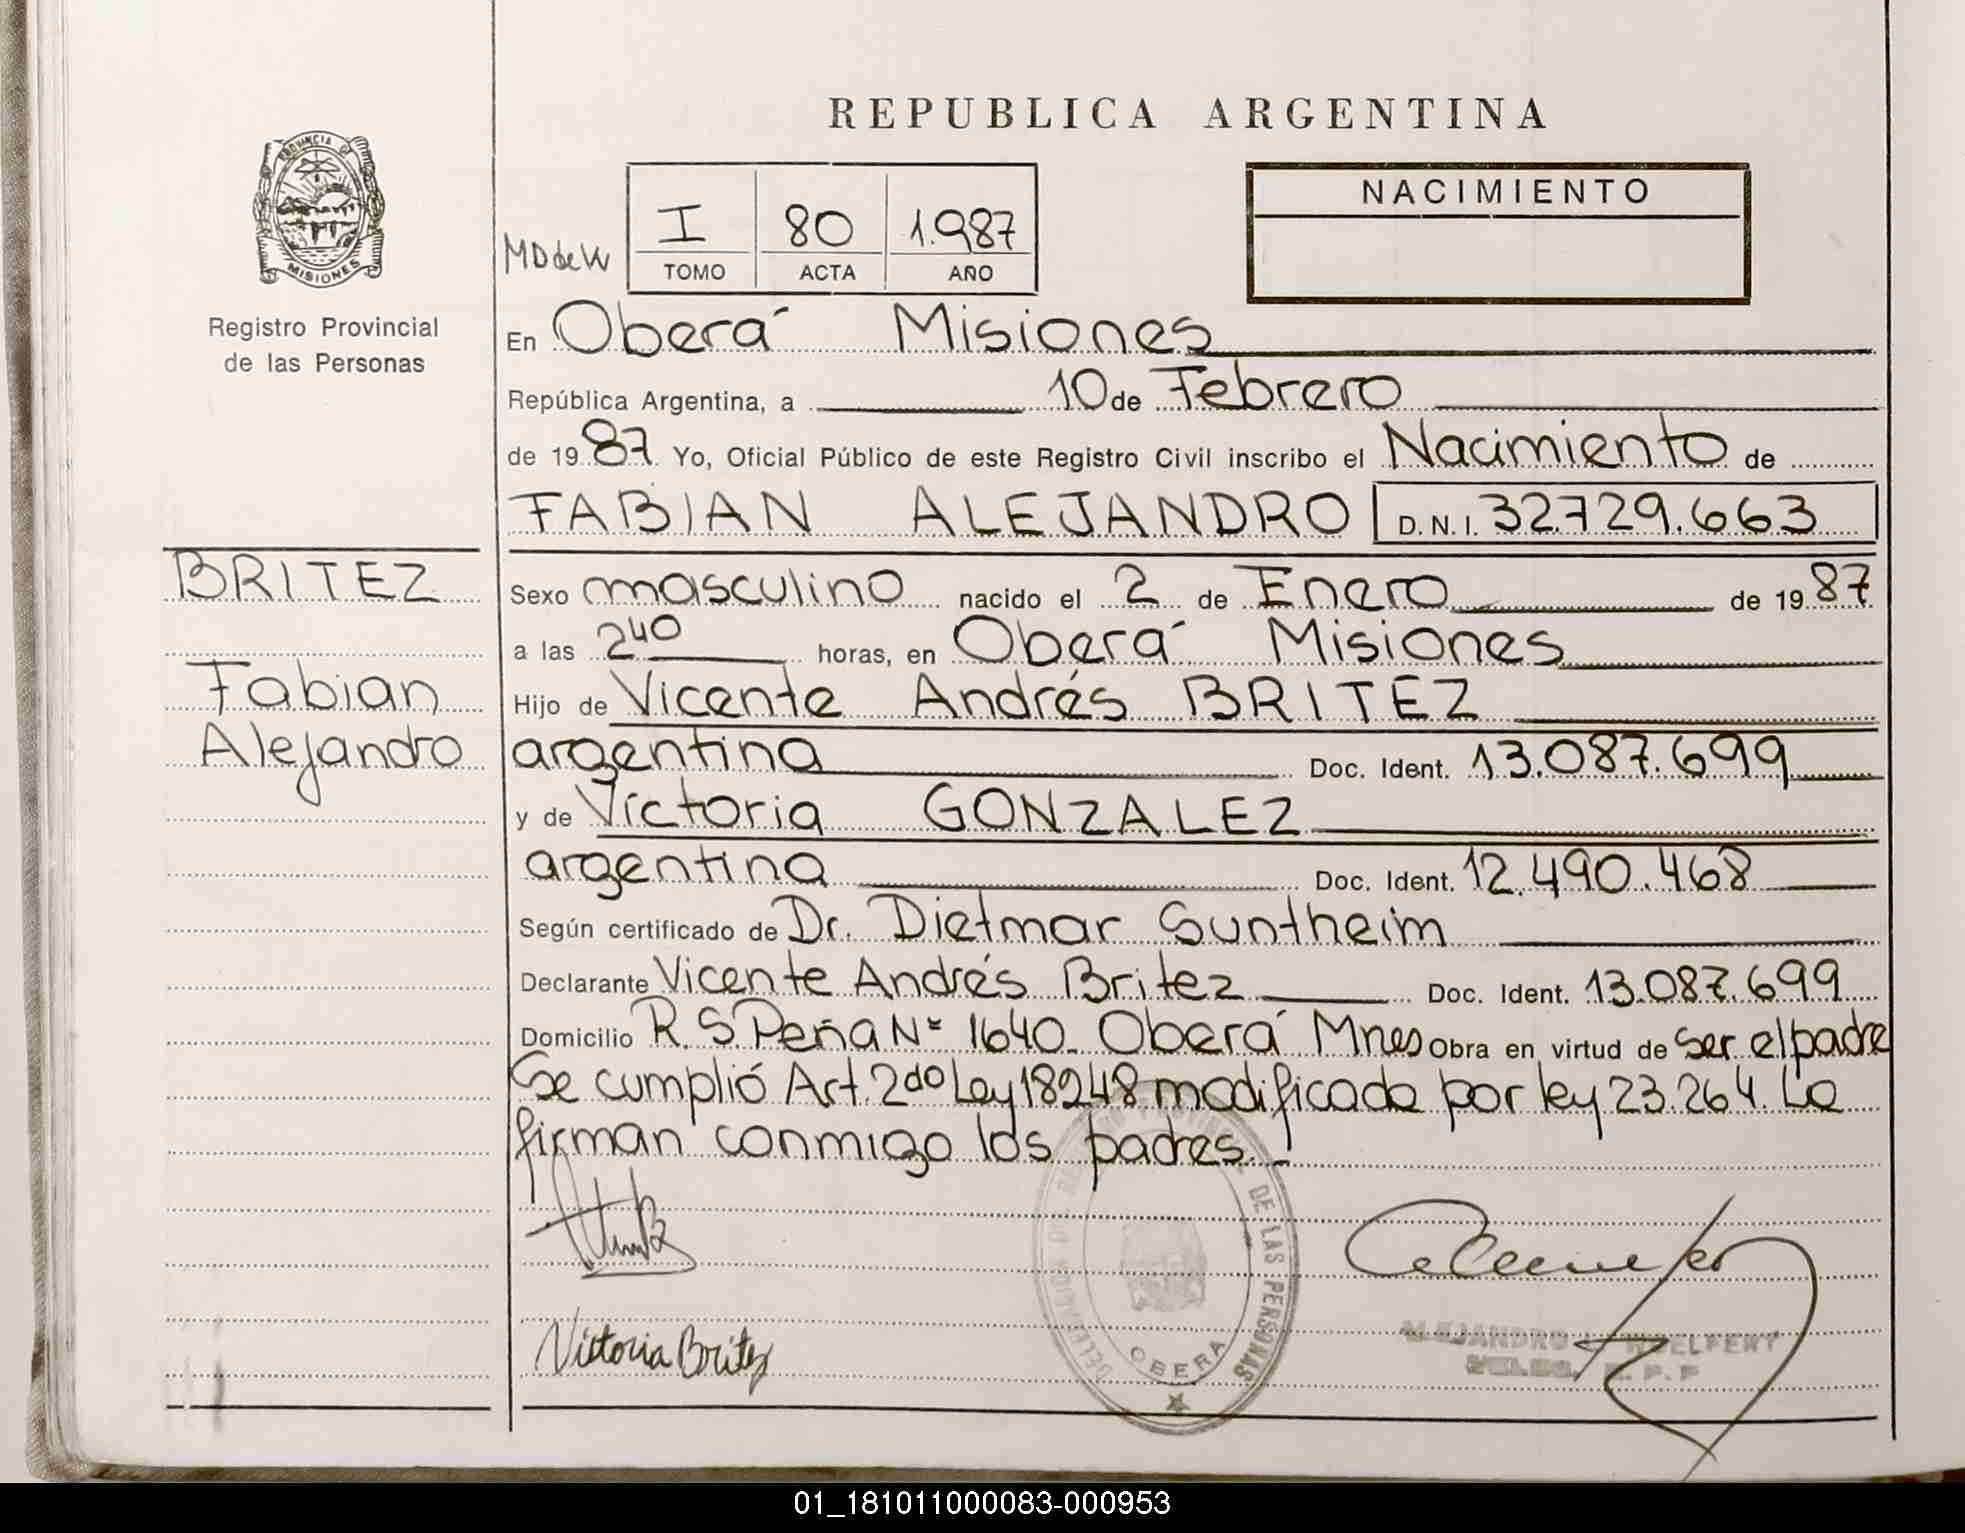 REPUBLICA ARGENTINA
PROVINCIA DE
MISIONES
Registro Provincial
de las Personas
NACIMIENTO
MD de W
I 80 1.987
TOMO ACTA AÑO
En Oberá Misiones
República Argentina, a 10 de Febrero
de 19 87 Yo, Oficial Público de este Registro Civil inscribo el Nacimiento de
FABIAN ALEJANDRO D.N.I. 32.729.663
BRITEZ
Fabian
Alejandro
Sexo masculino nacido el 2 de Enero de 19 87
a las 2 40 horas, en Oberá Misiones
Hijo de Vicente Andrés BRITEZ
argentina Doc. Ident. 13.087.699
y de Victoria GONZALEZ
argentina Doc. Ident. 12.490.468
Según certificado de Dr. Dietmar Suntheim
Declarante Vicente Andrés Britez Doc. Ident. 13.087.699
Domicilio R. S. Peña Nº 1640. Oberá Mnes Obra en virtud de ser el padre
Se cumplió Art. 2do Ley 18248 modificada por ley 23.264. La
firman conmigo los padres.-
DE LAS PERSONAS
OBERA
Victoria Britez
ALEJANDRO
01_181011000083-000953